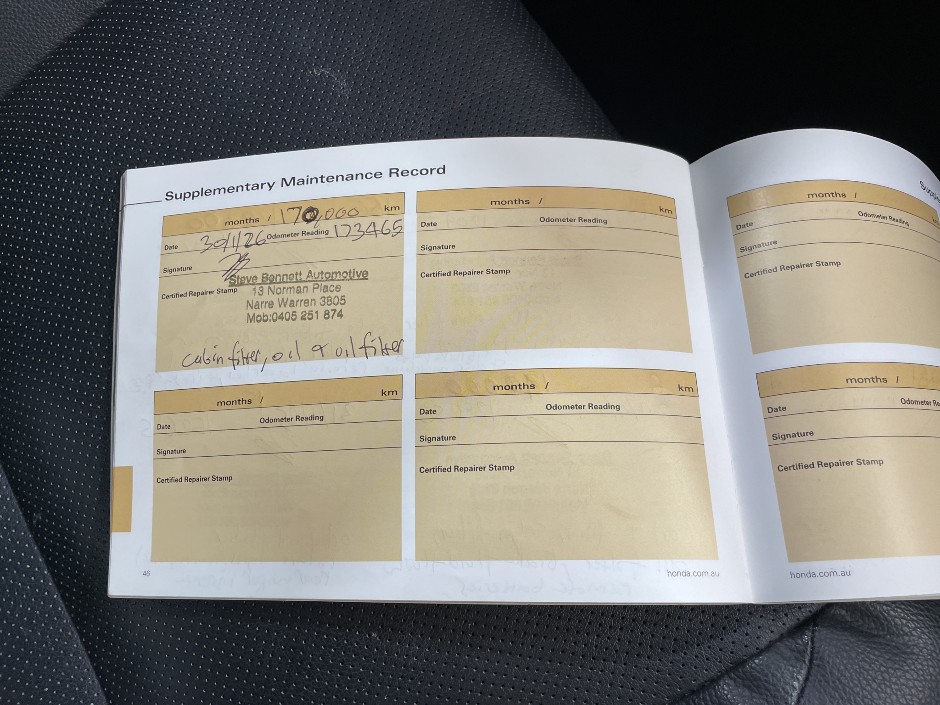 Supplementary Maintenance Record
months / 170,000 km
Date 30/1/26 Odometer Reading 173465
Signature
Certified Repairer Stamp
Steve Bennett Automotive
13 Norman Place
Narre Warren 3805
Mob:0405 251 874
cabin filter, oil & oil filter
months / km
Date Odometer Reading
Signature
Certified Repairer Stamp
months / km
Date Odometer Reading
Signature
Certified Repairer Stamp
months / km
Date Odometer Reading
Signature
Certified Repairer Stamp
46
honda.com.au
months /
Date Odometer Reading
Signature
Certified Repairer Stamp
months /
Date Odometer
Signature
Certified Repairer Stamp
honda.com.au